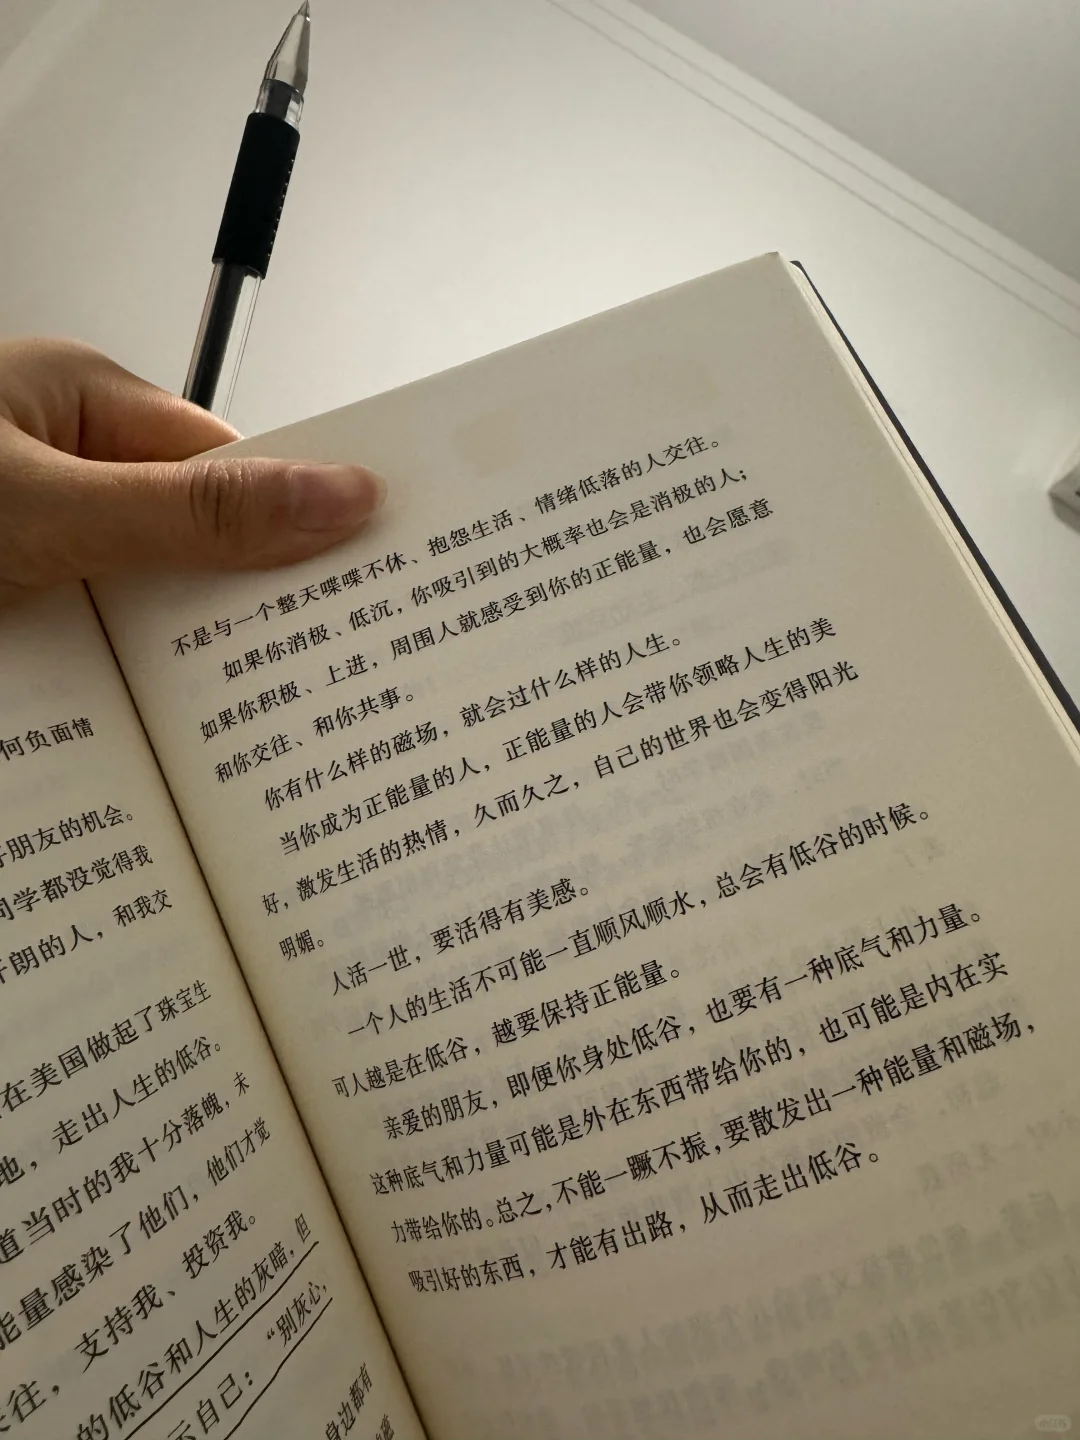 何负面情
朋友的机会。
同学都没觉得我
开朗的人，和我交
在美国做起了珠宝生
地，走出人生的低谷。
道当时的我十分落魄，未
能量感染了他们，他们才觉
往，支持我、投资我。
的低谷和人生的灰暗，但
示自己：“别灰心，
身边都有
不是与一个整天喋喋不休、抱怨生活、情绪低落的人交往。
如果你消极、低沉，你吸引到的大概率也会是消极的人；
如果你积极、上进，周围人就感受到你的正能量，也会愿意
和你交往、和你共事。
你有什么样的磁场，就会过什么样的人生。
当你成为正能量的人，正能量的人会带你领略人生的美
好，激发生活的热情，久而久之，自己的世界也会变得阳光
明媚。
人活一世，要活得有美感。
一个人的生活不可能一直顺风顺水，总会有低谷的时候。
可人越是在低谷，越要保持正能量。
亲爱的朋友，即便你身处低谷，也要有一种底气和力量。
这种底气和力量可能是外在东西带给你的，也可能是内在实
力带给你的。总之，不能一蹶不振，要散发出一种能量和磁场，
吸引好的东西，才能有出路，从而走出低谷。